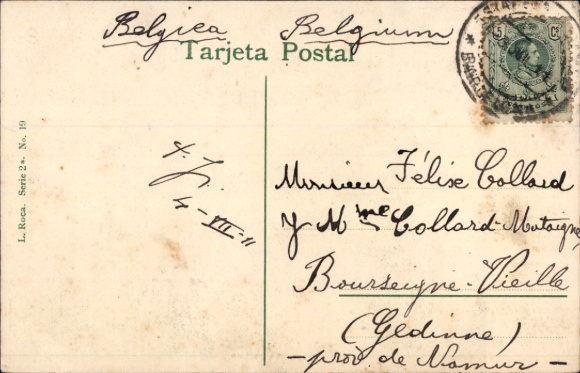 Belgica Belgium
Tarjeta Postal
5 Cs
BARCELONA
L. Roca. Serie 2ª. No. 19
4-VII-11
Monsieur Félix Collard
y Mme Collard-Mataigne
Bourseigne-Vieille
(Gedinne)
- prov de Namur -